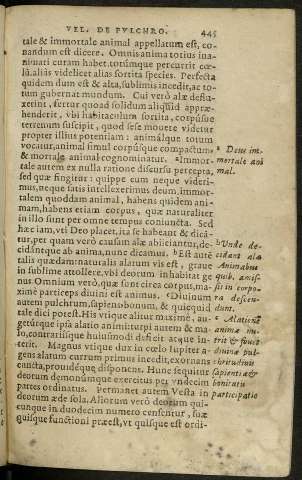 VEL. DE PVLCHRO. 445
tale & immortale animal appellatum est, co-
nandum est dicere. Omnis anima totius ina-
nimati curam habet, totúmque percurrit cœ-
lũ, aliàs videlicet alias sortita species. Perfecta
quidem dum est & alata, sublimis incedit, ac to-
tum gubernat mundum. Cui verò alæ defluxerint, fertur quoad solidum aliquid appre-
henderit, vbi habitaculum sortita, corpúsque
terrenum suscipit, quod sese mouere videtur
propter illius potentiam: animálque totum
vocatur, animal simul corpúsque compactum
& mortale animal cognominatur. Immor-
tale autem ex nulla ratione discursu percepta,
sed quæ fingitur: quippe cum neque videri-
mus, neque satis intellexerimus deum, immor-
tale quoddam animal, habens quidem ani-
mam, habens etiam corpus, quæ naturaliter
in illo sint per omne tempus coniuncta. Sed
hæc iam, vti Deo placet, ita se habeant & dicã-
tur, per quam verò causam alæ abiiciantur, de-
cidántque ab anima, nunc dicamus. Est autẽ
talis quædam naturalis alatum vis est, graue
in sublime attollere, vbi deorum inhabitat ge
nus Omnium verò, quæ sunt circa corpus, ma-
ximè particeps diuini est animus. Diuinum
autem pulchrum, sapiens, bonum, & quicquid
tale dici potest. His vtique alitur maximè, au-
getúrque ipsa alatio animi: turpi autem & ma-
lo, contrariísque huiusmodi deficit atque in-
terit. Magnus vtique dux in cœlo Iupiter a-
gens alatum currum primus incedit, exornans
cuncta, prouidéque disponens. Hunc sequitur
deorum dæmonúmque exercitus per vndecim
partes ordinatus. Permanet autem Vesta in
deorum æde sola. Aliorum verò deorum qui-
cunque in duodecim numero censentur, suæ
quisque functioni præest, vt quisque est ordi-
Deus im-
mortale ani
mal.
Vnde de-
cidant alæ
Animabus
quib. amis-
sis in corpo-
ra descen-
dunt.
Alatione
anima nu-
trit & fouet
diuina pul-
chritudinis
sapientiæ &
bonitatis
participatio